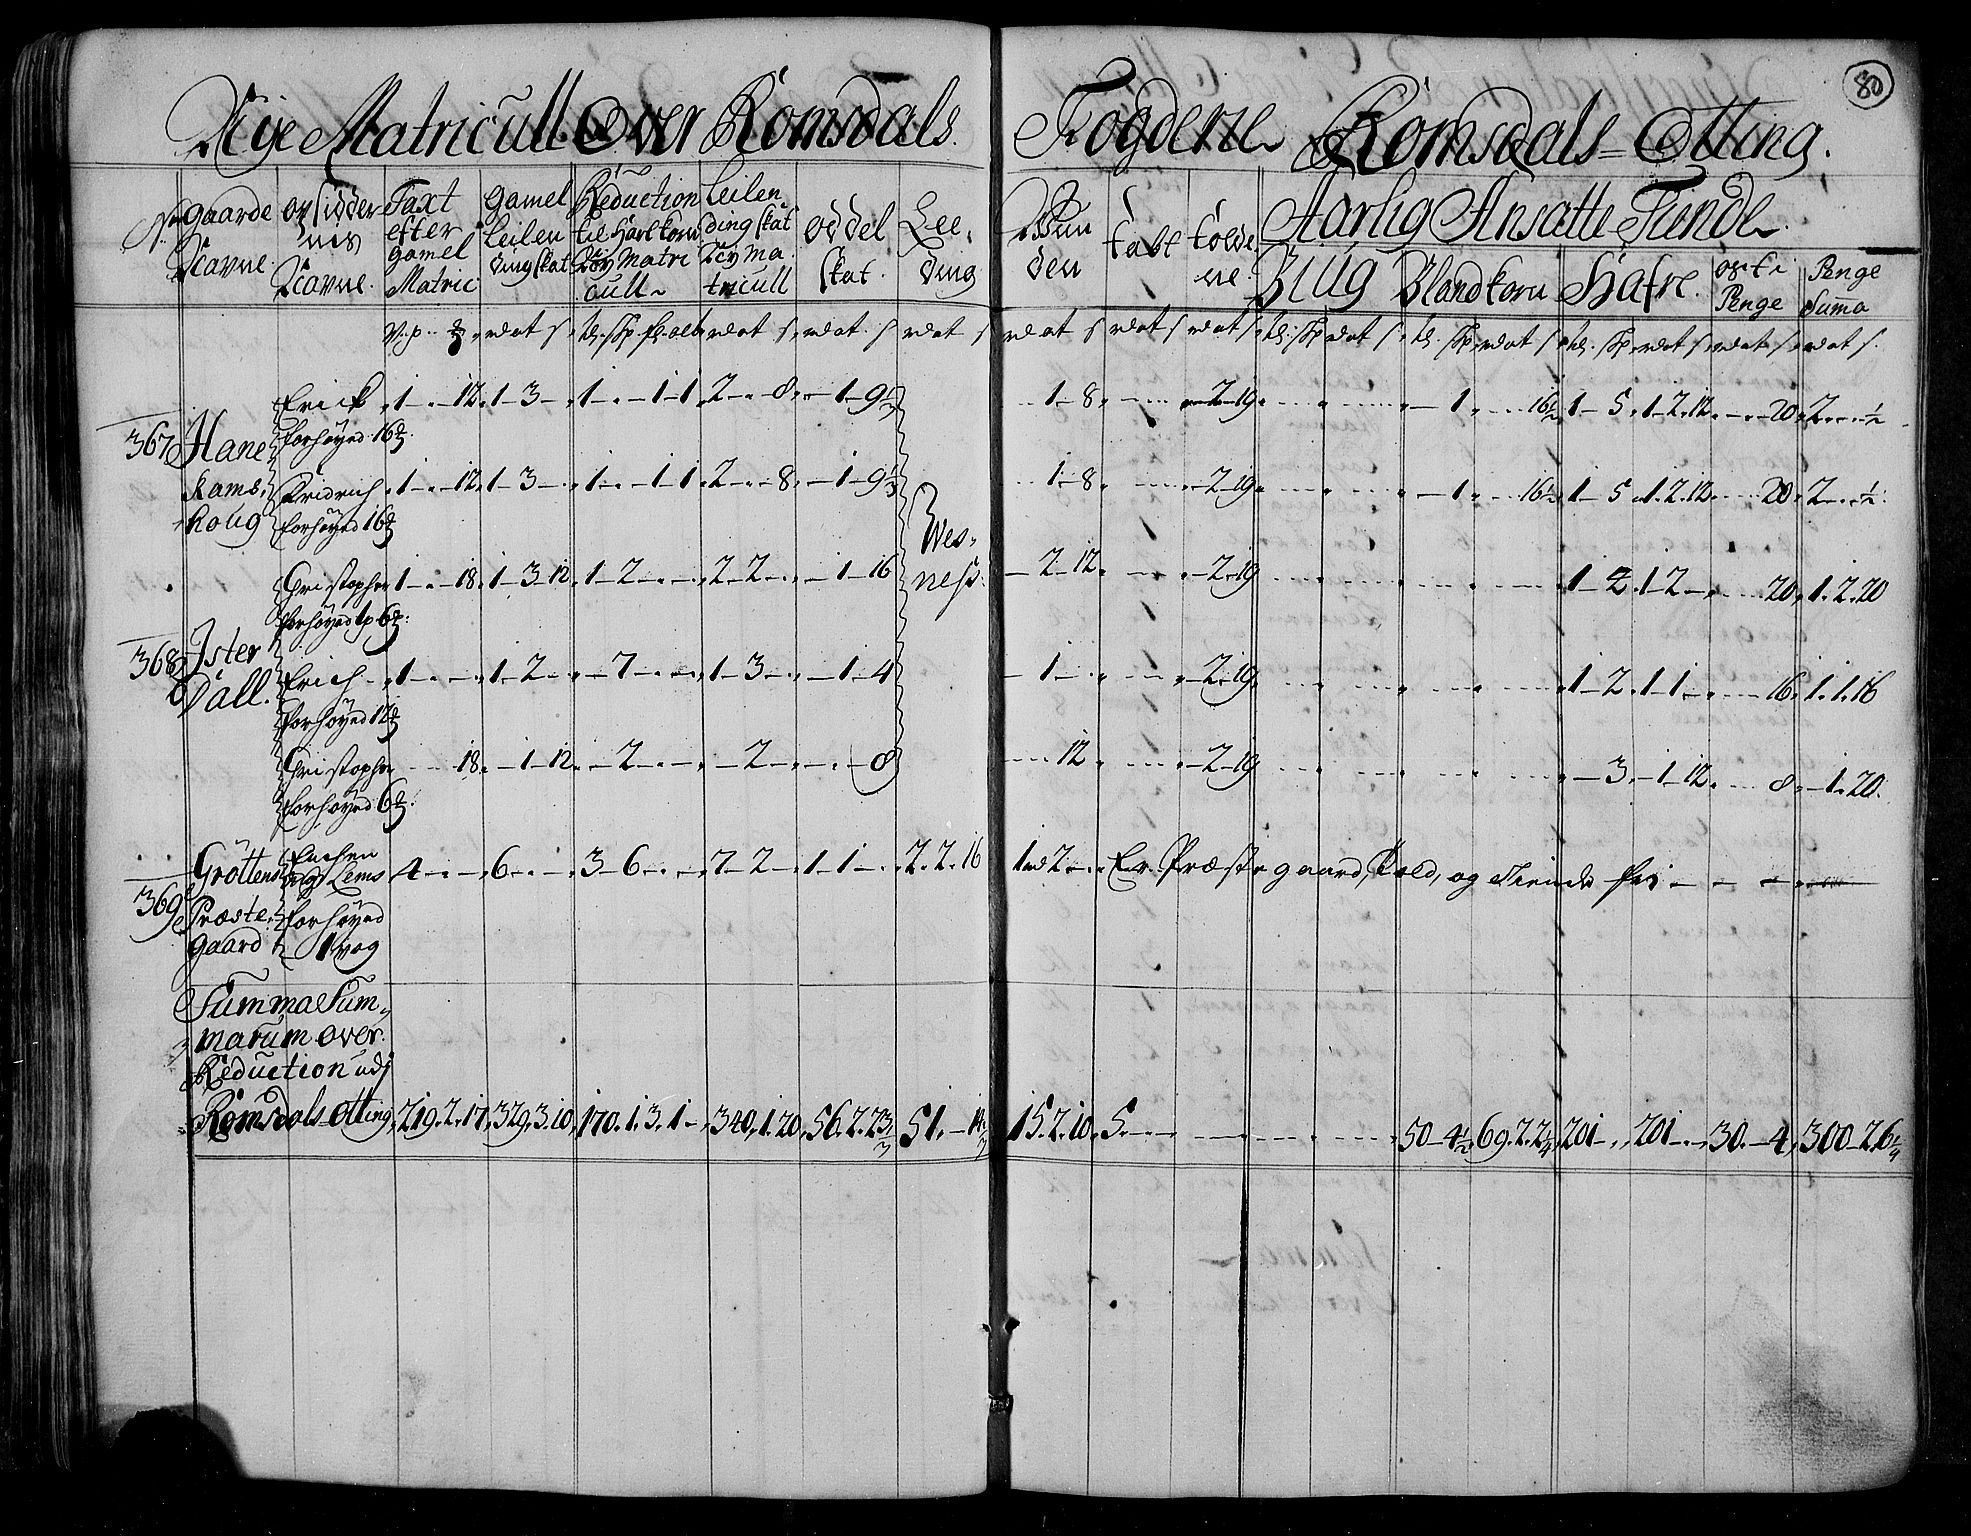 80
Nye Matricull Over Romsdals Fogderie Romsdals Otting.
No Gaarde Navne
Opsidder nis Navne
Taxt efter gamel Matric
Gamel Leilending skat
Reduction til Hartkorn Ny Matricull
Leilending skat Ny Matricull
Oddel skat
Leeding
Wunden
fast
tolde ne
Aarlig Ansatte Tiende
Biug
Blandkorn
Hafre
oste Penge
Penge Suma
367 Hane Kams Houg
Erick 1 - 12 1-3- 1-1-1 2-8 1-9 1/3 1-8 2-19 1 16½ 1-5 1-2.12 20 2 ½
forhøyed 16
Fridrich 1 - 12 1-3- 1-1-1 2-8 1-9 1/3 1-8 2-19 1 16½ 1-5 1.2.12 20 2 ½
forhøyed 16
Christopher 1 - 18 1-3-12 1-2 2-2 1-16 2-12 2-19 1-4 1-2 20 1.2.20
forhøyed 1p 6
Wesness
368 Ister Dall
Erich 1 1-2 7 1-3 1-4 1 2-19 1-2 1-1 16 1.1.16
forhøyed 12
Christopher 18 1-12 2 2 8 12 2-19 3 1-12 8 1.20
forhøyed 6
369 Grøttens Præste gaard
Enchen 4 6 3-6 7-2 1-1 2.2.16 1 2 Er Præste gaard, og Tiende fri
forhøyed 1 vog
Summa Summarum over Reduction udj
Romsdals Otting 219.2.17 329.3.10 170.1.3.1 340.1.20 56.2.23 51.-14 15.2.10 5 50-4½ 69.2.2¼ 201 201 30.-4 300-26¼